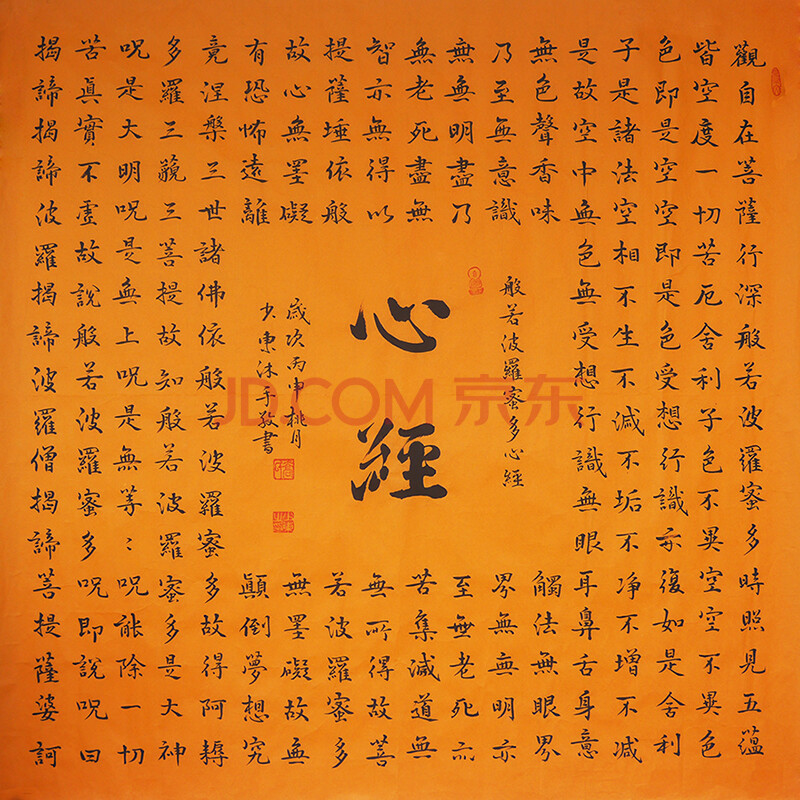 觀自在菩薩行深般若波羅蜜多時照見五蘊
皆空度一切苦厄舍利子色不異空空不異色
色即是空空即是色受想行識亦復如是舍利
子是諸法空相不生不滅不垢不净不增不減
是故空中無色無受想行識無眼耳鼻舌身意
無色聲香味觸法無眼界
乃至無意識界無無明亦
無無明盡乃至無老死亦
無老死盡無苦集滅道無
智亦無得以無所得故菩
提薩埵依般若波羅蜜多
故心無罣礙無罣礙故無
有恐怖遠離顛倒夢想究
竟涅槃三世諸佛依般若波羅蜜多故得阿耨
多羅三藐三菩提故知般若波羅蜜多是大神
呪是大明呪是無上呪是無等々呪能除一切
苦真實不虛故說般若波羅蜜多呪即說呪曰
揭諦揭諦波羅揭諦波羅僧揭諦菩提薩婆訶
般若波羅蜜多心經
心經
歲次丙申桃月
少東沐手敬書
JD.COM 京东